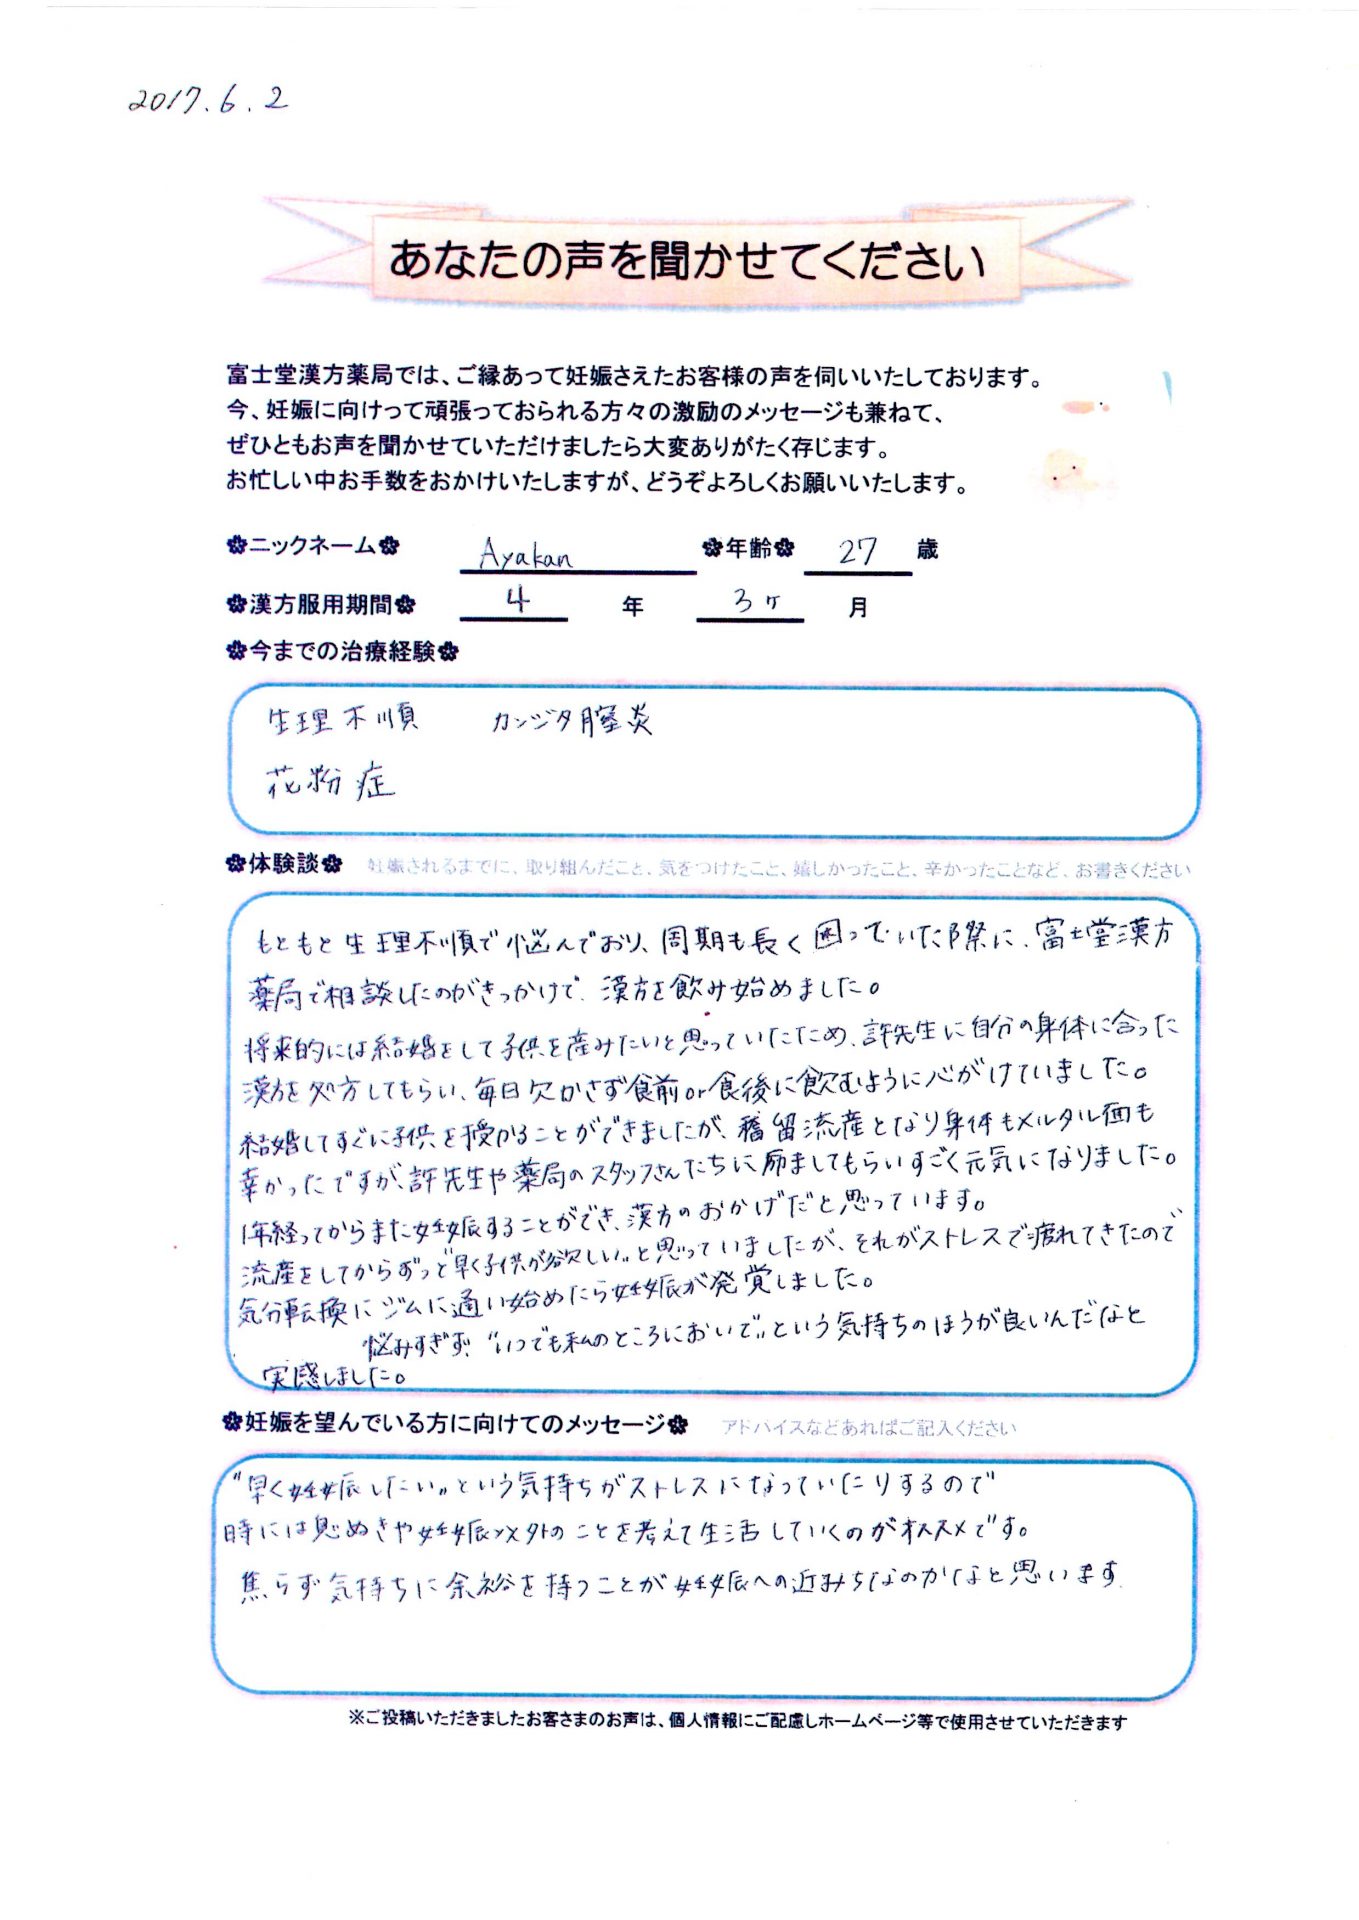 2017.6.2
あなたの声を聞かせてください
富士堂漢方薬局では、ご縁あって妊娠さえたお客様の声を伺いいたしております。
今、妊娠に向けって頑張っておられる方々の激励のメッセージも兼ねて、
ぜひともお声を聞かせていただけましたら大変ありがたく存じます。
お忙しい中お手数をおかけいたしますが、どうぞよろしくお願いいたします。
✿ニックネーム✿ Ayakan ✿年齢✿ 27 歳
✿漢方服用期間✿ 4 年 3ヶ 月
✿今までの治療経験✿
生理不順 カンジタ膣炎
花粉症
✿体験談✿ 妊娠されるまでに、取り組んだこと、気をつけたこと、嬉しかったこと、辛かったことなど、お書きください
もともと生理不順で悩んでおり、周期も長く困っていた際に、富士堂漢方
薬局で相談したのがきっかけで、漢方を飲み始めました。
将来的には結婚をして子供を産みたいと思っていたため、許先生に自分の身体に合った
漢方を処方してもらい、毎日欠かさず食前or食後に飲むように心がけていました。
結婚してすぐに子供を授かることができましたが、稽留流産となり身体もメルタル面も
辛かったですが、許先生や薬局のスタッフさんたちに励ましてもらいすごく元気になりました。
1年経ってからまた妊娠することができ、漢方のおかげだと思っています。
流産をしてからずっと"早く子供が欲しい"と思っていましたが、それがストレスで疲れてきたので
気分転換にジムに通い始めたら妊娠が発覚しました。
悩みすぎず、"いつでも私のところにおいで"という気持ちのほうが良いんだなと
実感しました。
✿妊娠を望んでいる方に向けてのメッセージ✿ アドバイスなどあればご記入ください
"早く妊娠したい"という気持ちがストレスになっていたりするので
時には息ぬきや妊娠以外のことを考えて生活していくのがオススメです。
焦らず気持ちに余裕を持つことが妊娠への近みちなのかなと思います
※ご投稿いただきましたお客さまのお声は、個人情報にご配慮しホームページ等で使用させていただきます